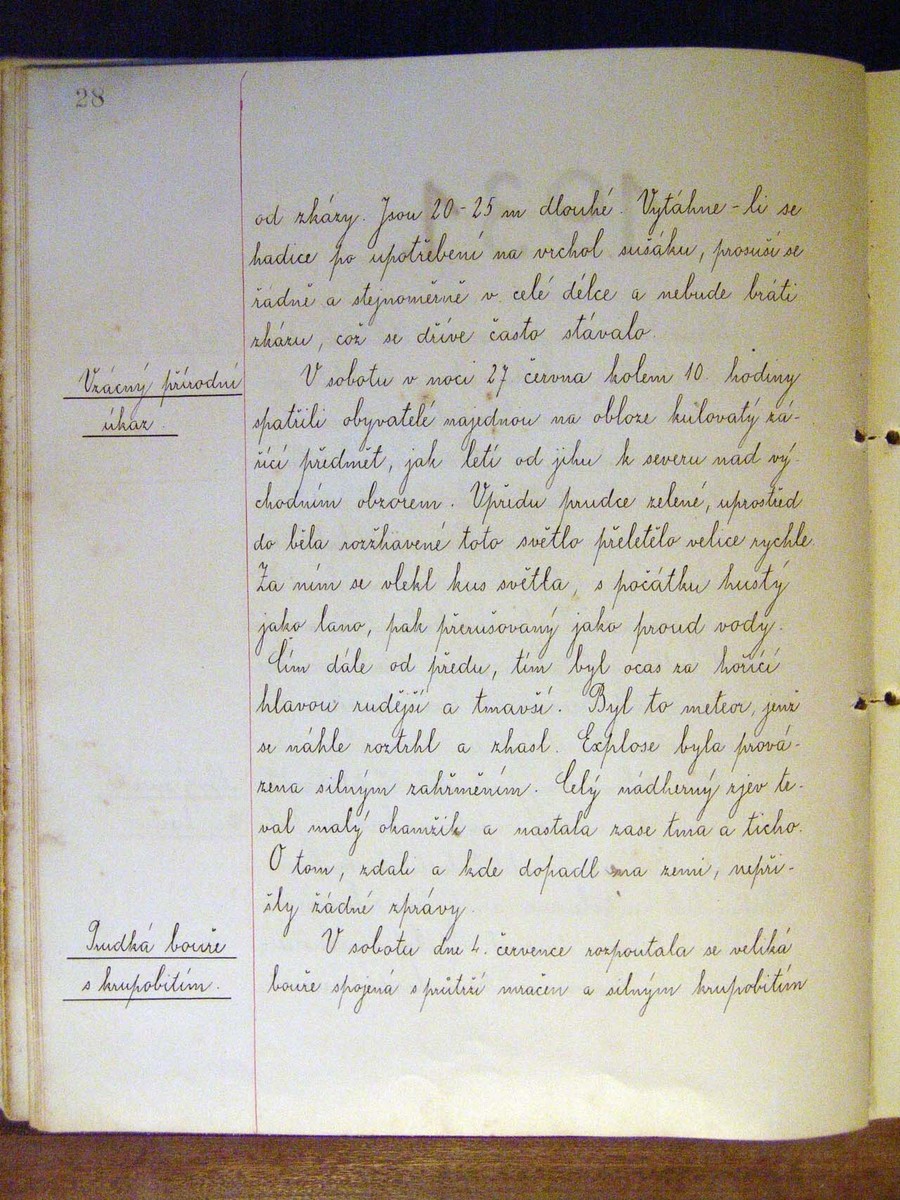 28
od zkázy. Jsou 20-25 m dlouhé. Vytáhne-li se
hadice po upotřebení na vrchol sušáku, prosuší se
řádně a stejnoměrně v celé délce a nebude bráti
zkázu, což se dříve často stávalo.
Vzácný přírodní
úkaz.
V sobotu v noci 27 června kolem 10. hodiny
spatřili obyvatelé najednou na obloze kulovatý zá-
řící předmět, jak letí od jihu k severu nad vý-
chodním obzorem. Vpředu prudce zelené, uprostřed
do běla rozžhavené toto světlo přeletělo velice rychle.
Za ním se vlekl kus světla, s počátku hustý
jako lano, pak přerušovaný jako proud vody.
Čím dále od předu, tím byl ocas za hořící
hlavou rudější a tmavší. Byl to meteor, jenž
se náhle roztrhl a zhasl. Explose byla prová-
zena silným zahřměním. Celý nádherný zjev te-
val malý okamžik a nastala zase tma a ticho.
O tom, zdali a kde dopadl na zemi, nepři-
šly žádné zprávy.
Prudká bouře
s krupobitím.
V sobotu dne 4. července rozpoutala se veliká
bouře spojená s průtrží mračen a silným krupobitím